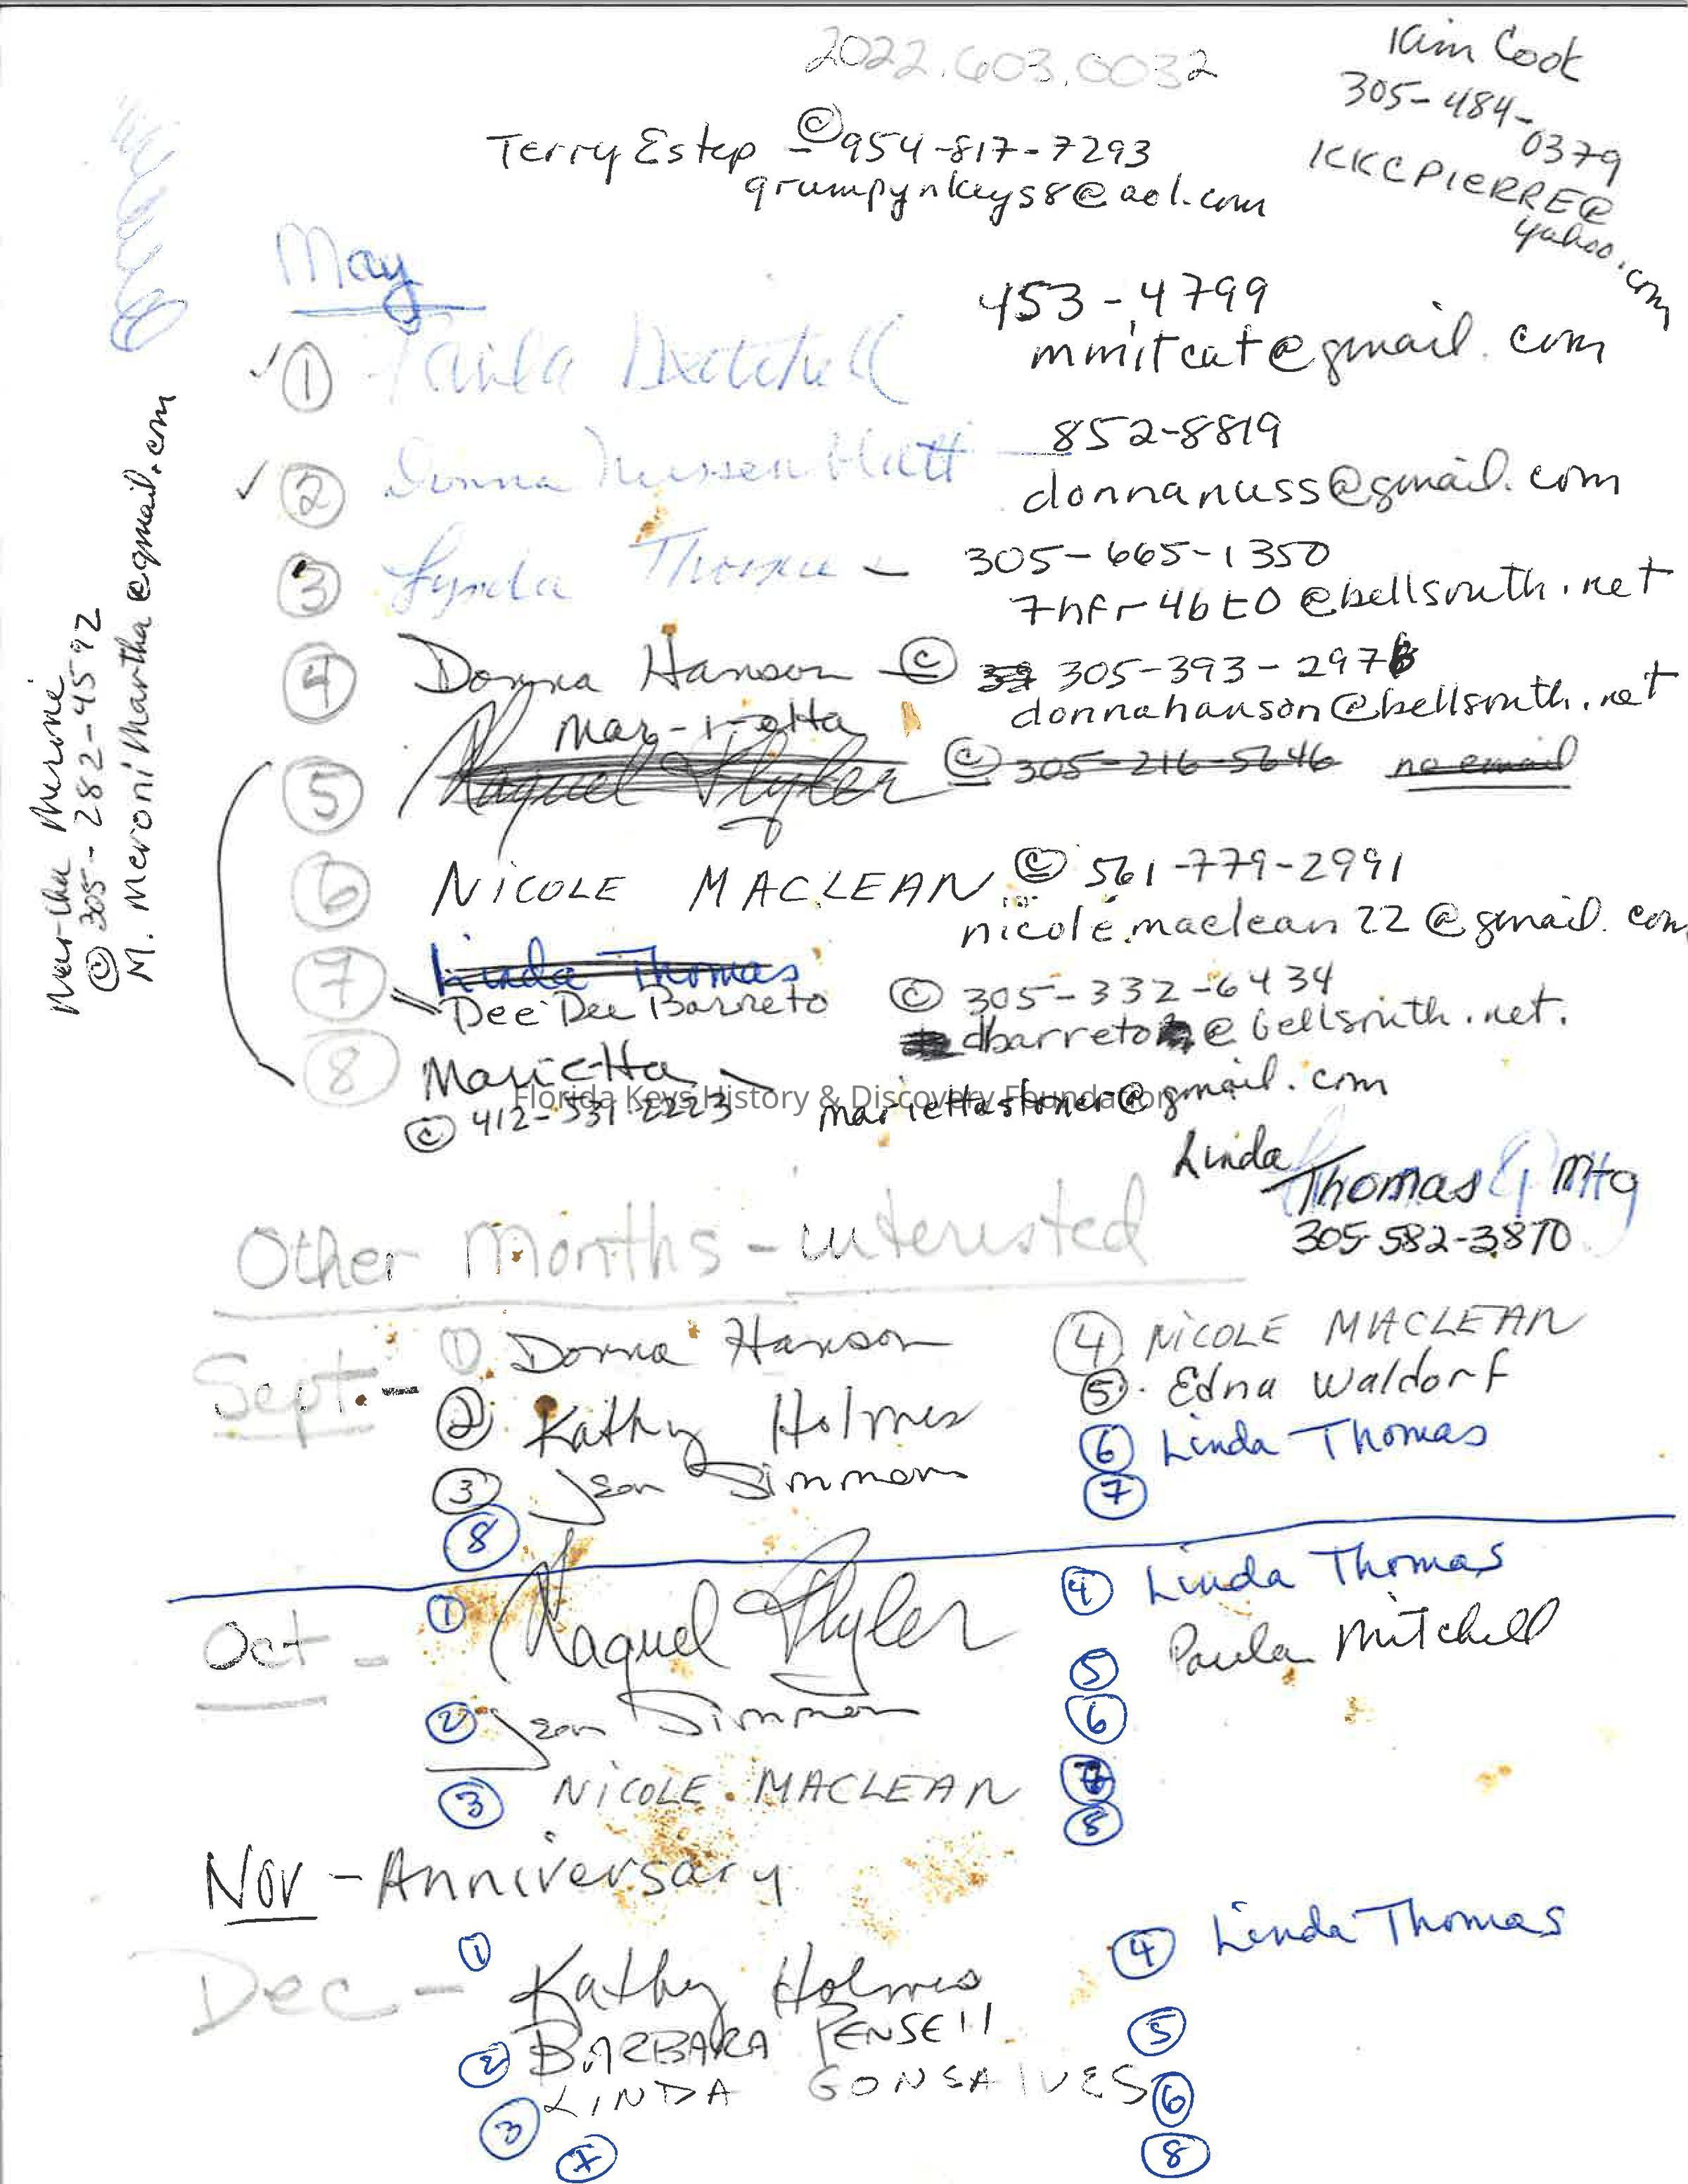 2022.603.0032
Kim Cook
305-484-0379
KKCPIERRE@
yahoo.com
Terry Estep - © 954-817-7293
grumpynkeys8@aol.com
May
453-4799
① Paula
mmitcat@gmail.com
② Donna Nussenblatt - 852-8819
donnanuss@gmail.com
③ Lynda - 305-665-1350
7hfr4bt0@bellsouth.net
④ Donna Hanson - © 305-393-2976
donnahanson@bellsouth.net
Mar-i-etta
⑤ Raquel © 305-216-5646 no email
⑥ NICOLE MACLEAN © 561-779-2991
nicole.maclean22@gmail.com
⑦ Linda Thomas
Dee Dee Barreto © 305-332-6434
dbarreto@bellsouth.net.
⑧ Marietta -
© 412-531-2223 mariettastoner@gmail.com
Florida Keys History & Discovery Foundation
Martha Meroni
© 305-282-4592
M.MeroniMartha@gmail.com
Linda
Thomas Mtg
305-582-3870
Other Months - interested
Sept. -
① Donna Hanson
② Kathy Holmes
③ Jean Simmons
④ NICOLE MACLEAN
⑤ Edna Waldorf
⑥ Linda Thomas
⑦
⑧
Oct -
① Raquel
② Jean Simmons
③ NICOLE MACLEAN
④ Linda Thomas
⑤ Paula Mitchell
⑥
⑦
⑧
Nov - Anniversary
Dec -
① Kathy Holmes
② BARBARA PENSEll
③ LINDA GONSALVES
④ Linda Thomas
⑤
⑥
⑦
⑧